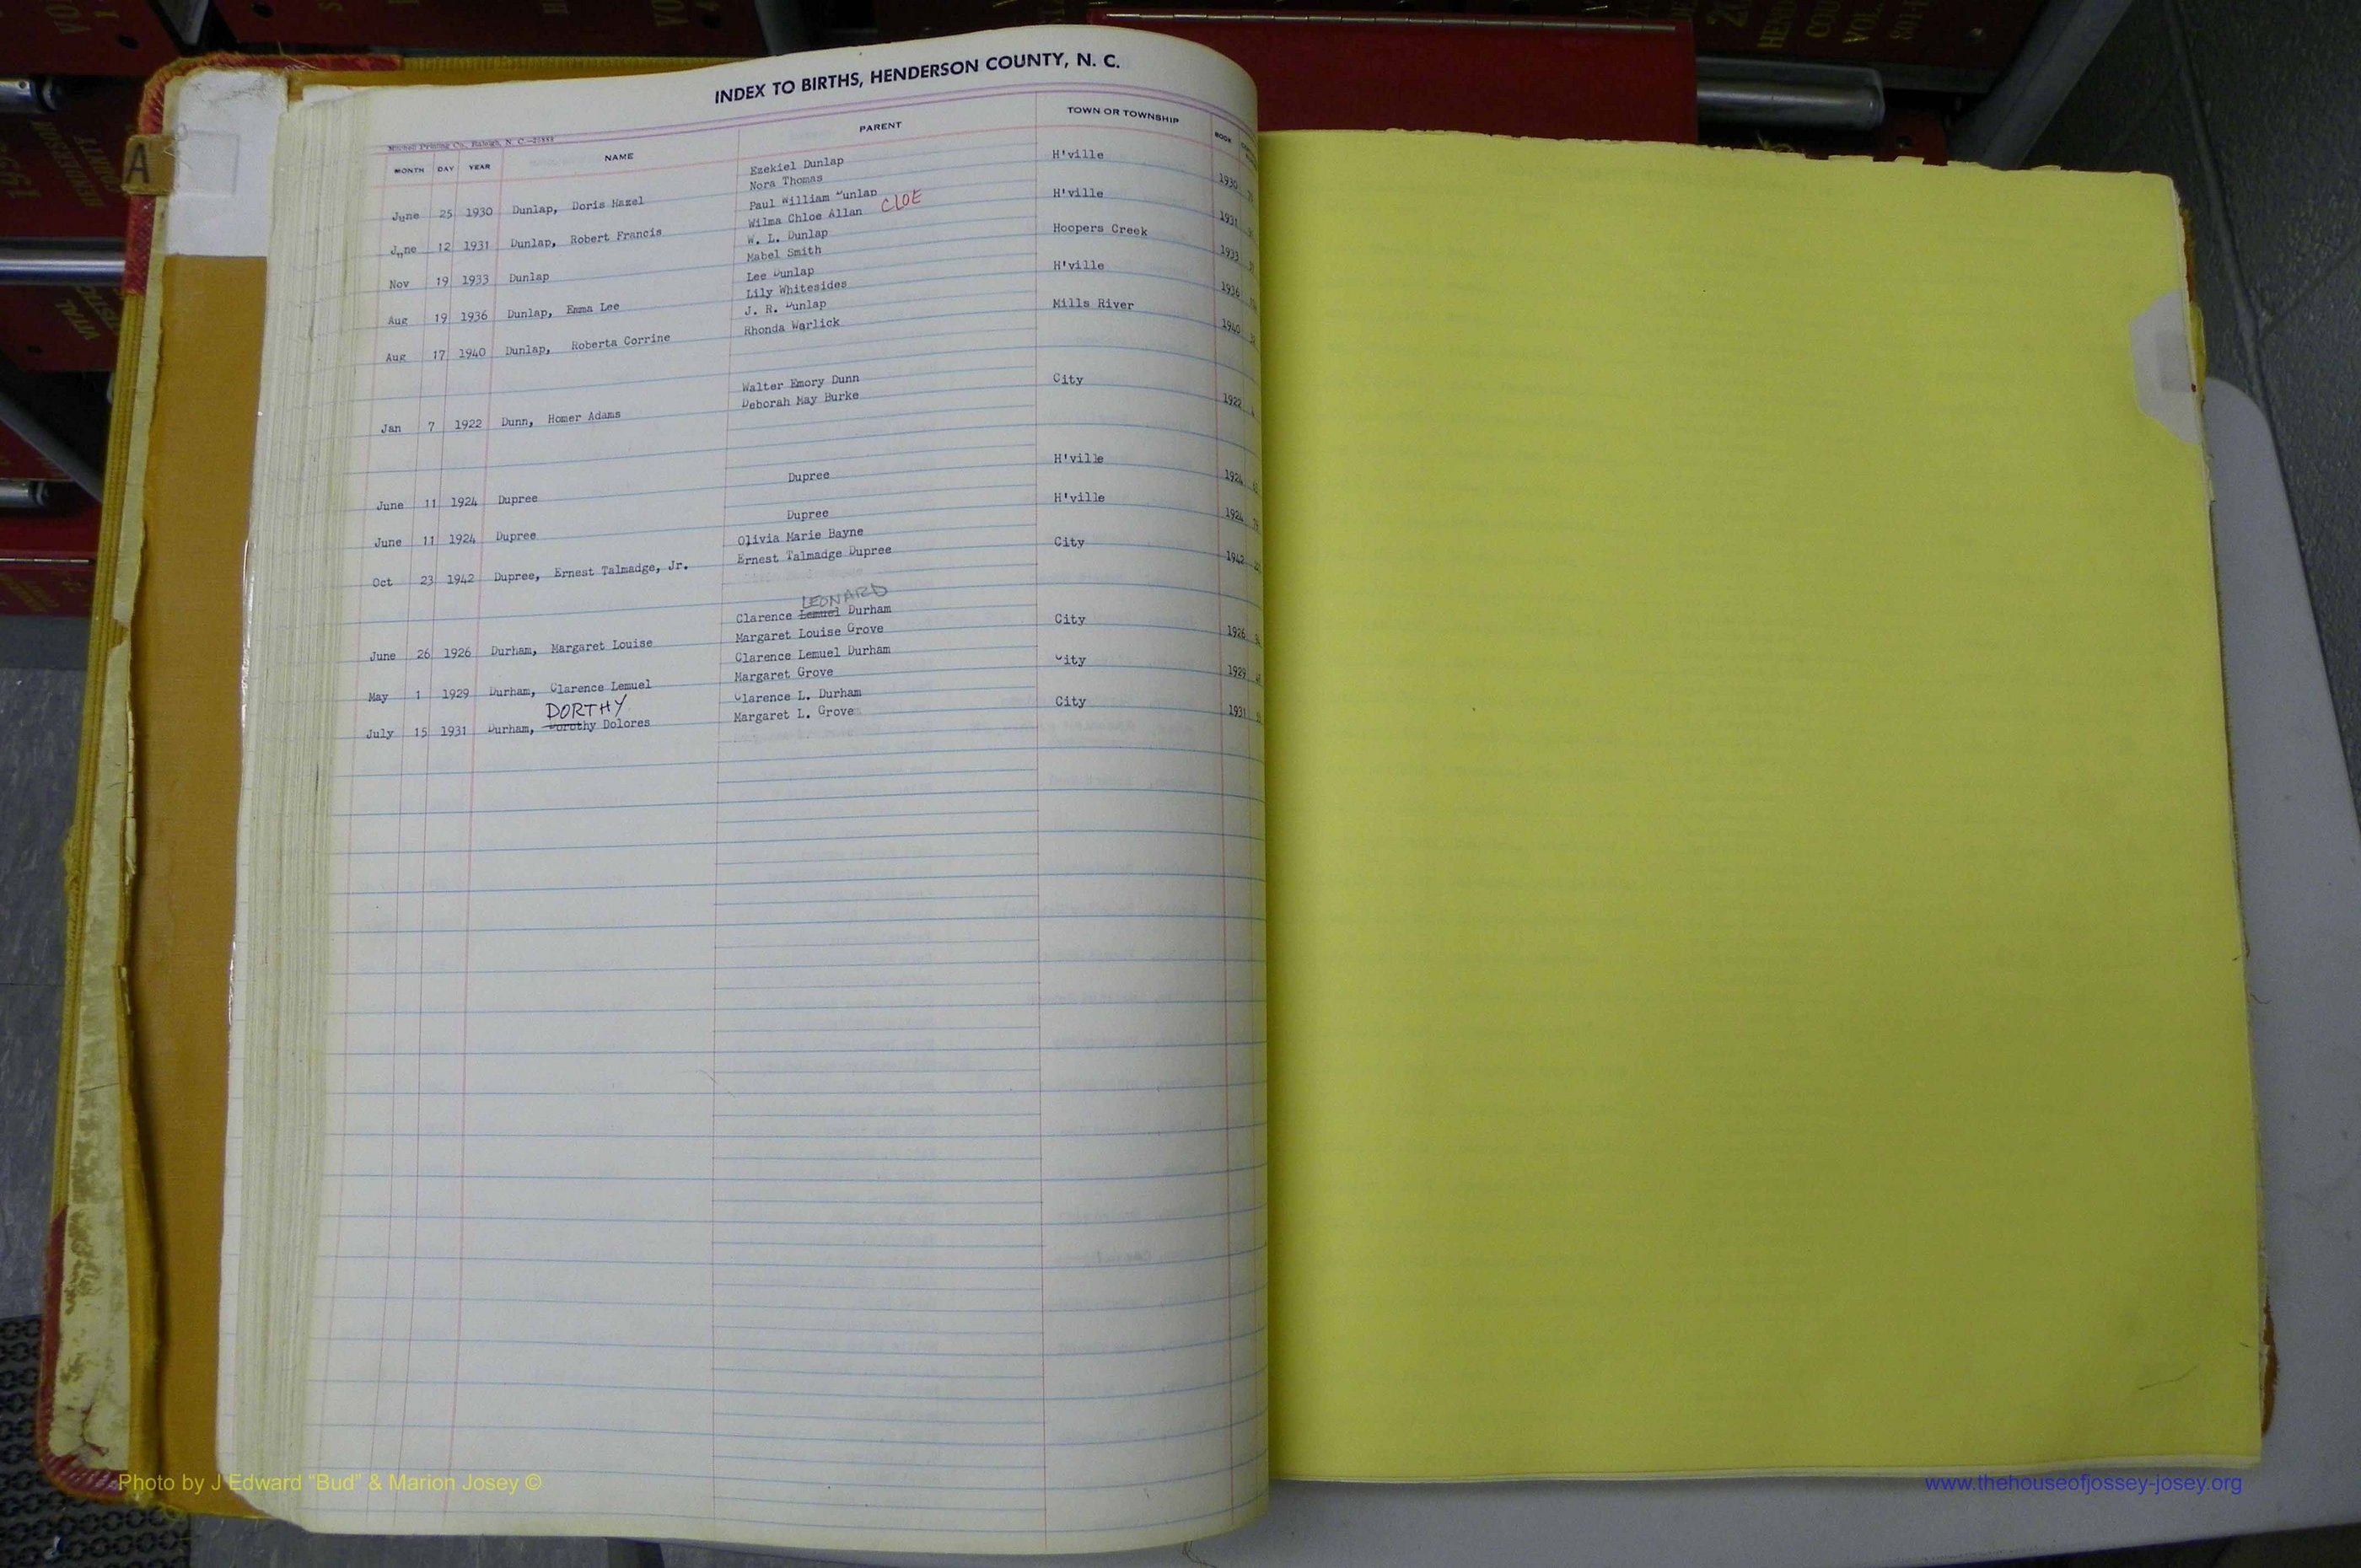 INDEX TO BIRTHS, HENDERSON COUNTY, N. C.
Mitchell Printing Co., Raleigh, N. C.
MONTH DAY YEAR NAME PARENT TOWN OR TOWNSHIP BOOK
Ezekiel Dunlap H'ville
Nora Thomas
June 25 1930 Dunlap, Doris Hazel 1930
Paul William Dunlap H'ville
Wilma Chloe Allan CLOE
June 12 1931 Dunlap, Robert Francis 1931
W. L. Dunlap Hoopers Creek
Mabel Smith
Nov 19 1933 Dunlap 1933
Lee Dunlap H'ville
Lily Whitesides
Aug 19 1936 Dunlap, Emma Lee 1936
J. R. Dunlap Mills River
Rhonda Warlick
Aug 17 1940 Dunlap, Roberta Corrine 1940
Walter Emory Dunn City
Deborah May Burke
Jan 7 1922 Dunn, Homer Adams 1922
Dupree H'ville
June 11 1924 Dupree 1924
Dupree H'ville
June 11 1924 Dupree 1924
Olivia Marie Bayne City
Ernest Talmadge Dupree
Oct 23 1942 Dupree, Ernest Talmadge, Jr. 1942
LEONARD
Clarence Lemuel Durham City
Margaret Louise Grove
June 26 1926 Durham, Margaret Louise 1926
Clarence Lemuel Durham City
Margaret Grove
May 1 1929 Durham, Clarence Lemuel 1929
Clarence L. Durham City
Margaret L. Grove
DORTHY
July 15 1931 Durham, Dorothy Dolores 1931
A
Photo by J Edward “Bud” & Marion Josey ©
www.thehouseofjossey-josey.org